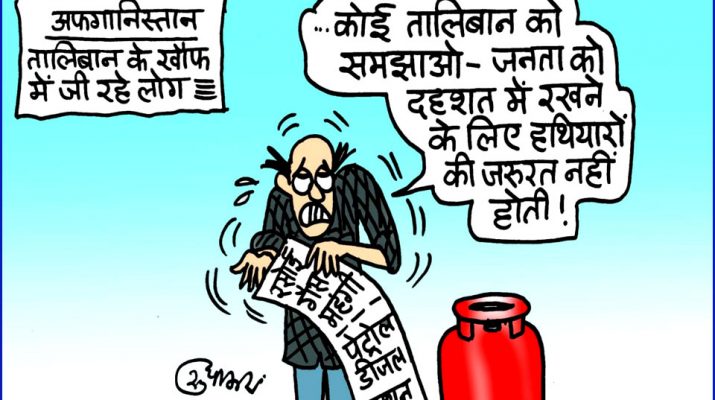 अफगानिस्तान
तालिबान के खौफ
में जी रहे लोग
...कोई तालिबान को
समझाओ - जनता को
दहशत में रखने
के लिए हथियारों
की जरुरत नहीं
होती!
पेट्रोल
डीजल